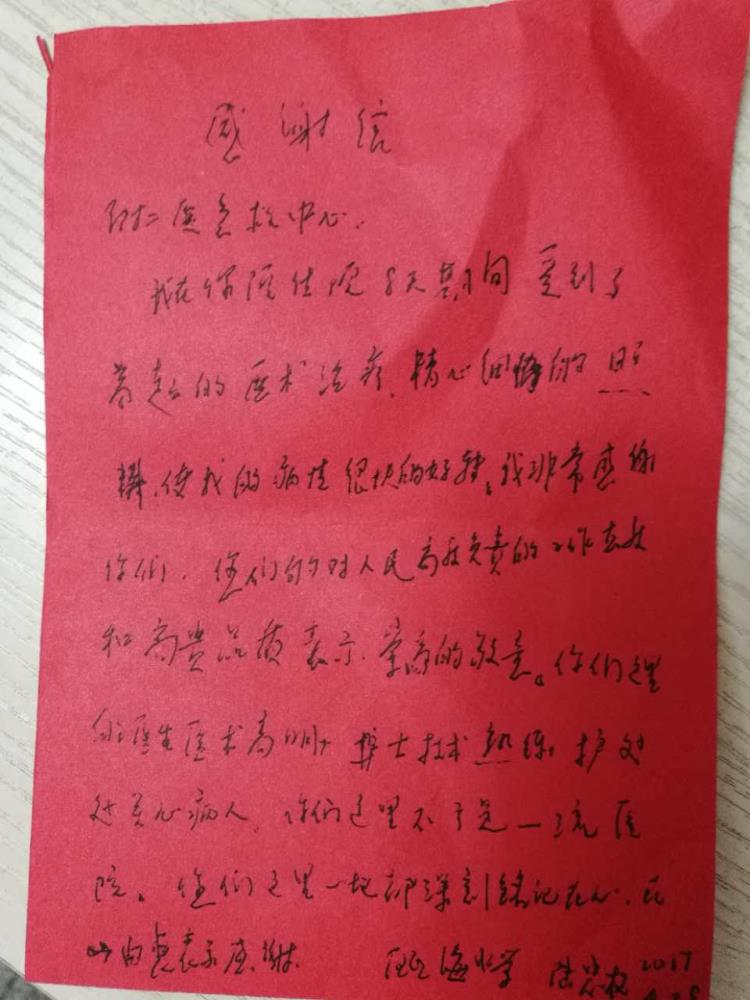 感谢信
附二医急救中心.
我在你医住院8天期间受到了
的医术治疗,精心细的照
使我的病情很快的好转。我非常感谢
你们.您们的对人民高度负责的工作态度
和高贵品质表示.崇高的敬意。你们这里
的医生医术高明,护士技术熟练,护处
处关心病人.你们这里不于是一流医
院。您们这里一切都深刻铭记在心.
由衷表示感谢. 2017